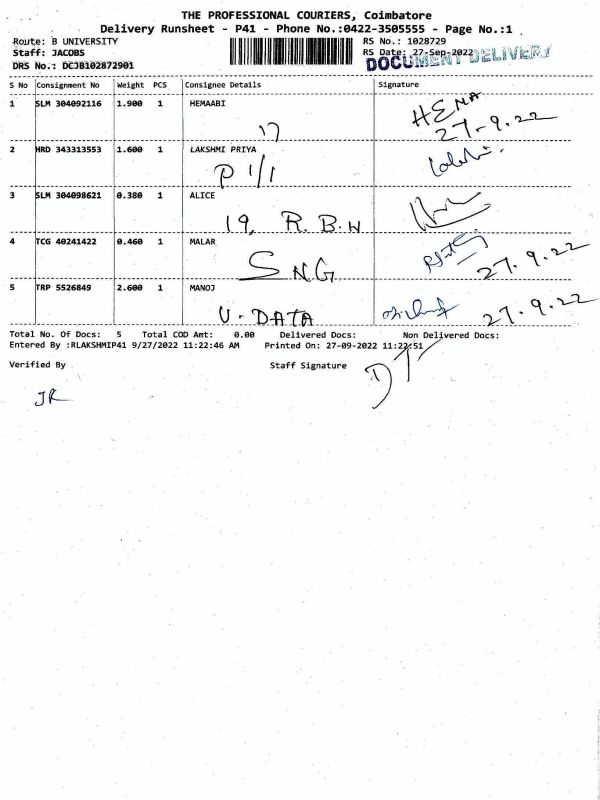 THE PROFESSIONAL COURIERS, Coimbatore
Delivery Runsheet - P41 - Phone No.:0422-3505555 - Page No.:1
Route: B UNIVERSITY RS No.: 1028729
Staff: JACOBS RS Date: 27-Sep-2022
DOCUMENT DELIVERY
DRS No.: DCJB102872901
S No Consignment No Weight PCS Consignee Details Signature
1 SLM 304092116 1.900 1 HEMAABI
17 HEMA
27-9.22
2 HRD 343313553 1.600 1 LAKSHMI PRIYA
P 1/1
3 SLM 304098621 0.380 1 ALICE
19, R.B.W
4 TCG 40241422 0.460 1 MALAR
SNG 27.9.22
5 TRP 5526849 2.600 1 MANOJ
U-DATA 27.9.22
Total No. Of Docs: 5 Total COD Amt: 0.00 Delivered Docs: Non Delivered Docs:
Entered By :RLAKSHMIP41 9/27/2022 11:22:46 AM Printed On: 27-09-2022 11:22:51
Verified By Staff Signature
JR